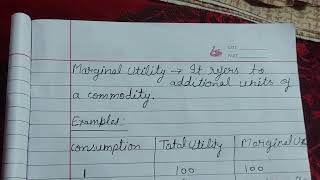 DATE
PAGE
Marginal Utility → It refers to
additional units of
a commodity.
Examples:
Consumption Total Utility Marginal Ut
1 100 100